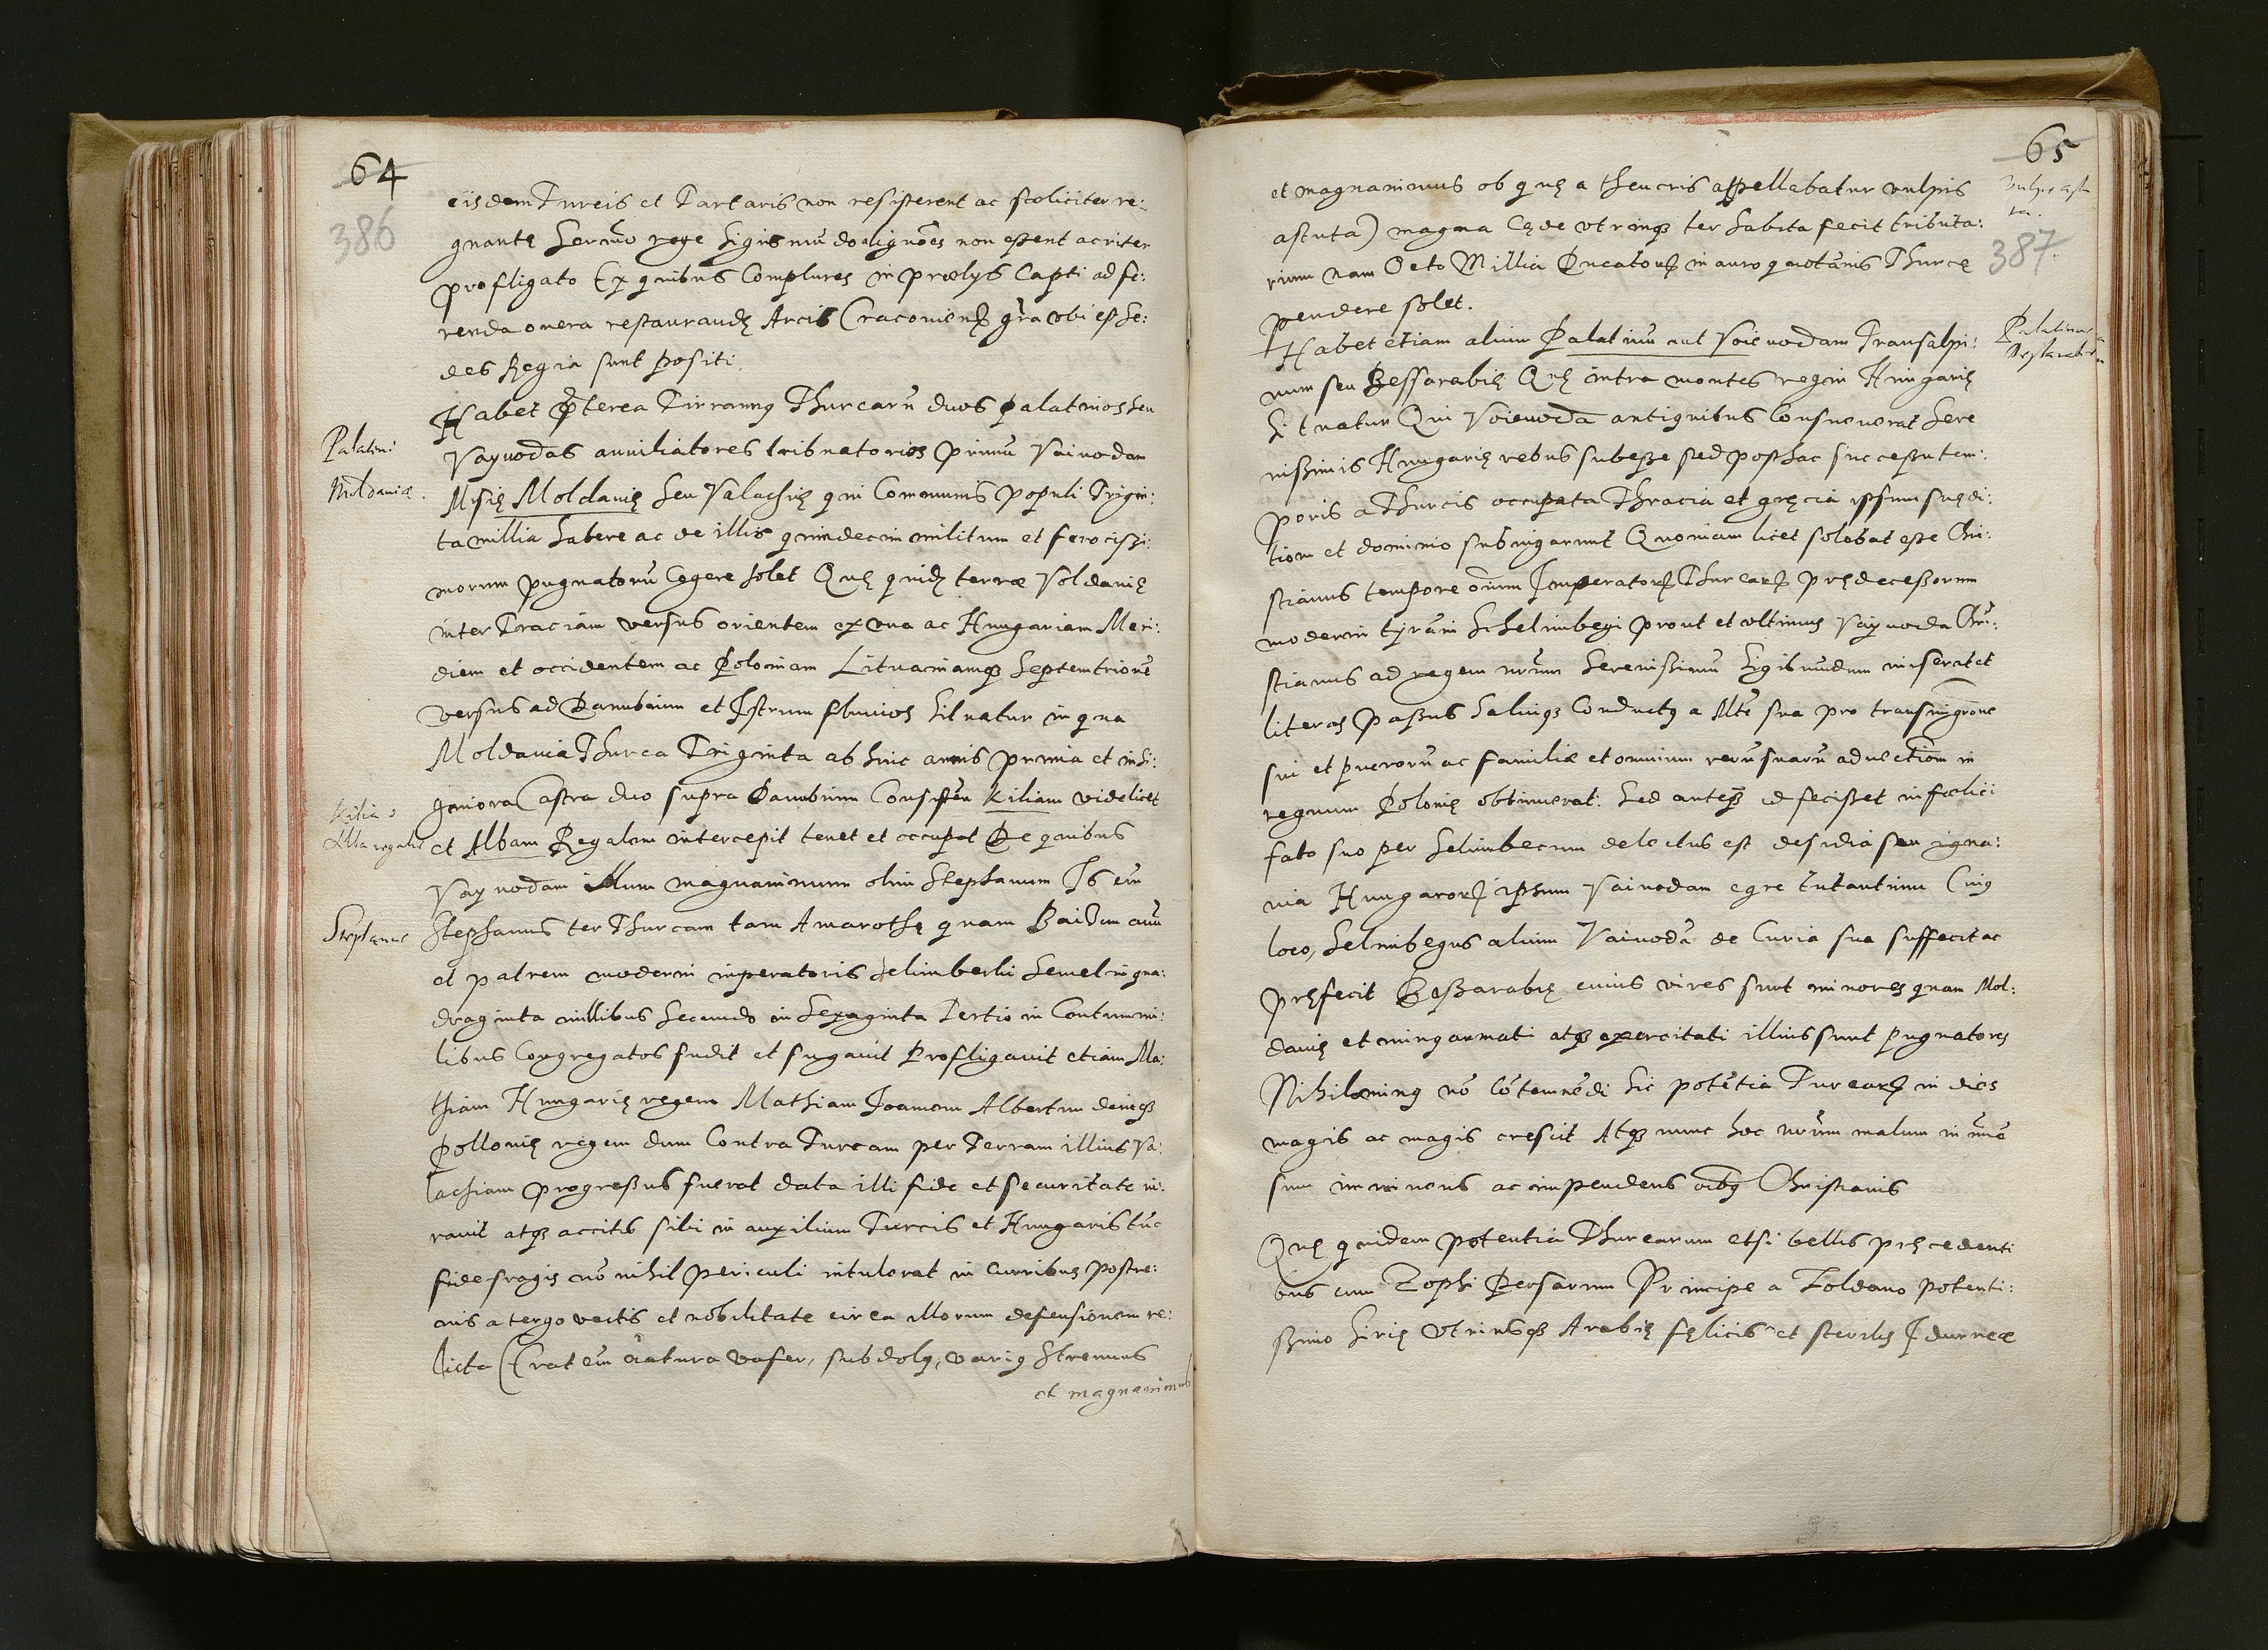 64
386
eisdem Turcis et Tartaris non resisterent ac fœliciter re:
gnantę Sermō rege Sigismūdo aūgnões non essent acriter
profligato Ex quibus Complures in prælys Capti ad fe:
renda onera restaurandę Arcis Cracouien gra vbi est se:
des Regia sunt positi.
Habet preterea Tirranng Thurcarū duos palatinos seu
Palatini
Vayuodas auxiliatores tributarios Primū Vaiuodam
Moldauiæ.
Misię Moldauię seu Valachię qui Communis populi Trigin:
ta millia habere ac de illis quindecim militum et ferocissi:
morum pugnatorū Cogere solet Quę quidē terræ Voldauię
inter Traciam versus orientem ex vna ac Hungariam Meri:
diem et occidentem ac Poloniam Lituaniamqz Septemtrionē
versus ad Danubium et Istrum fluuios Situatur in qua
Moldauia Thurca Triginta ab hinc annis primia et insi:
Kilia
gniora Castra duo supra Danubium Consisten Kiliam videlicet
Alba regalis
et Albam Regalem intercepit tenet et occupat De quibus
Vayuodam illum magnanimum olim Stephanum Is eīm
Stephanus
Stephanus ter Thurcam tam Amurothę quam Baizam auū
et patrem moderni imperatoris Selimbechi Semel in qua:
draginta millibus Secundo in Sexaginta Tertio in Centummi:
libus Congregatos fudit et fugauit Profligauit etiam Ma:
thiam Hungarię regem Mathiam Joannem Albertum deniqz
Pollonię regem dum Contra Turcam per Terram illius Va:
lachiam progressus fuerat data illi fide et securitate iu:
rauit atqz accitis sibi in auxilium Turcis et Hungaris tūc
fidefragis nō nihil periculi intulerat in Curribus postre:
mis a tergo vectis et nobilitate circa illorum defensionem re:
licta (Erat eīm natura vafer, subdolg, varig Strenuus
et magnanimus
65
et magnanimus ob quę a theucris appellabatur vulpis
vulpis astu
ta.
astuta) magna Cęde vtrinqz ter habita fecit tributa:
387.
rium nam Octo Millia Ducator in auro quotānis Thurcę
pendere solet.
Habet etiam alium Palatinū aut Voieuodam Transalpi:
Palatinus
Bessarabiæ
num seu Bessarabię Quę intra montes regni Hungarię
Situatur Qui Voieuoda antiquibus Consueuerat Sere
nissimis Hungarię rebus subesse sed posthac successu tem:
poris a Thurcis occupata Thracia et gręcia ipsum suę di:
tiom et dominio subiugarunt Quoniam licet solebat esse Chri:
stianus tempore oīum Imperator Thurcar prędecessorum
moderni tyrāni Schelimbegi prout et vltimus Vayuoda Chri:
stianus ad regem nrum Serenissimū Sigismūdum miserat et
literas passus Saluiqz Conductg a Mte sua pro transmigrone
sui et puerorū ac familiæ et omnium rerū suarū aduectiom in
regnum Polonię obtinuerat. Sed anteqz id fecisset infœlici
fato suo per Selimbecum delectus est desidia seu igna:
uia Hungaror ipsum Vaiuodam egre tutantium Cuig
loco, Selimbegus alium Vaiuodā de Curia sua suffecit ac
pręfecit Bessarabię cuius vires sunt minores quam Mol:
dauię et ming armati atqz exercitati illius sunt pugnatores
Nihiloming nō cōtemnēdi Sic potētia Turcar in dies
magis ac magis crescit Atqz nunc hoc nrum malum in
sum iminens ac impendens oībg Christianis
Quę quidem potentia Thurcarum etsi bellis pręcedenti
bus cum Zophi Persarum Principe a Soldano potenti:
ssimo Sirię Vtriusqz Arabię fęlicis et sterilis Idumeæ